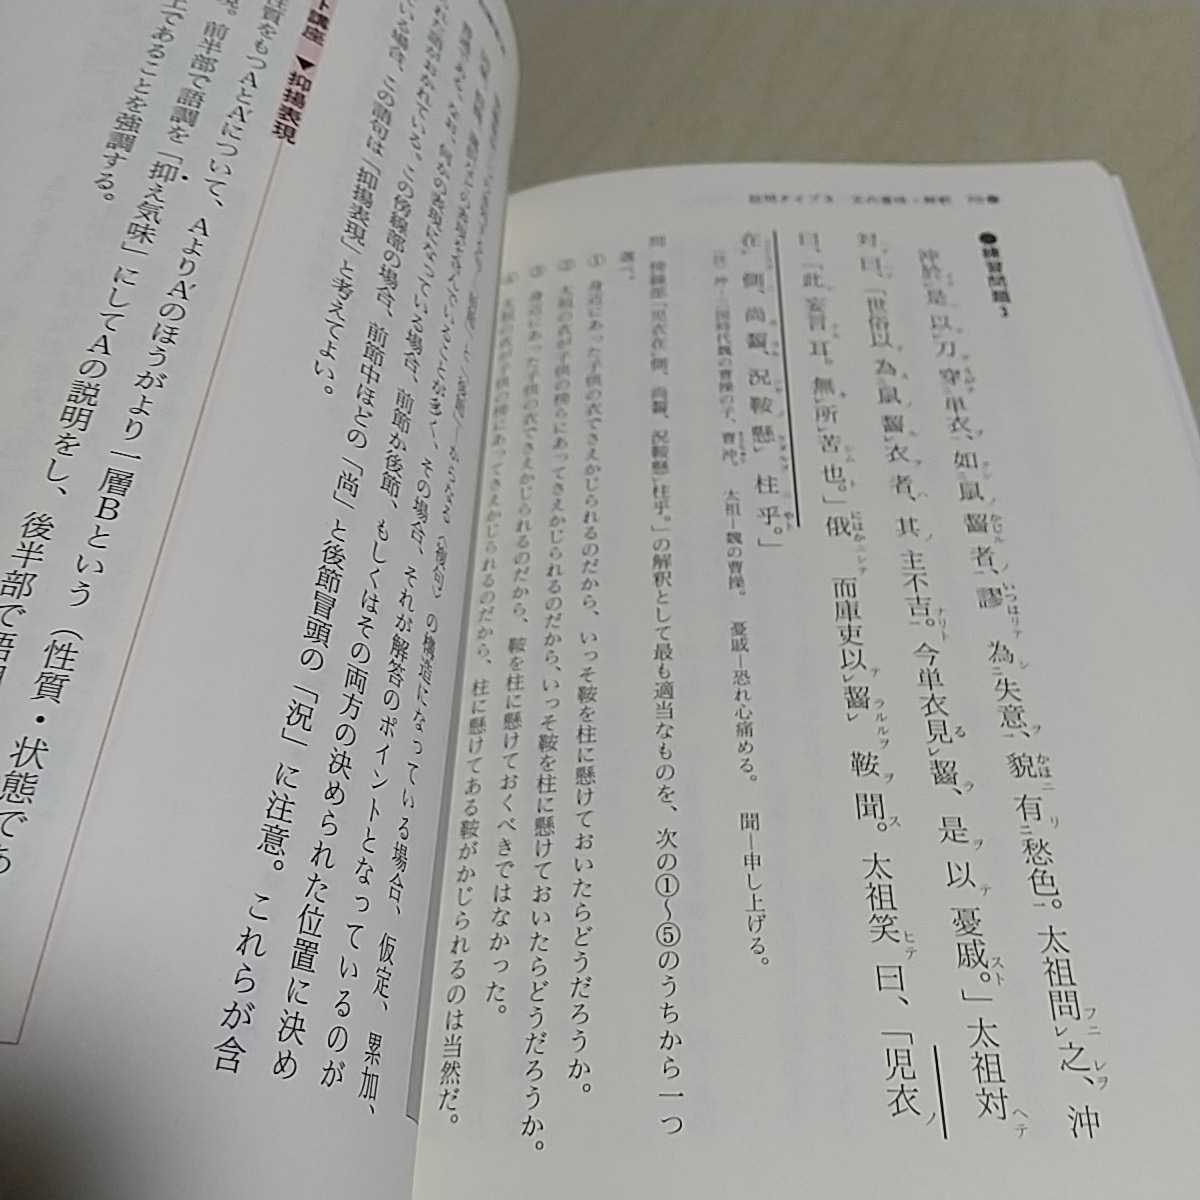 練習問題3
沖於是以刀穿単衣、如鼠齧者、謬為失意、貌有愁色。太祖問之、沖
対曰、「世俗以為鼠齧衣者、其主不吉。今単衣見齧、是以憂戚。」太祖対
曰、「此妄言耳。無所苦也。」俄而庫吏以齧鞍聞。太祖笑曰、「児衣
在側、尚齧、況鞍懸柱乎。」
(注) 沖―三国時代魏の曹操の子、曹沖。 太祖―魏の曹操。 憂戚―恐れ心痛める。 聞―申し上げる。
問 傍線部「児衣在側、尚齧、況鞍懸柱乎。」の解釈として最も適当なものを、次の①〜⑤のうちから一つ
選べ。
① 身辺にあった子供の衣でさえかじられるのだから、いっそ鞍を柱に懸けておいたらどうだろうか。
② 太祖の衣が子供の傍らにあってさえかじられるのだから、いっそ鞍を柱に懸けておいたらどうだろうか。
③ 身辺にあった子供の衣でさえかじられるのだから、鞍を柱に懸けておくべきではなかった。
④ 太祖の衣が子供の傍にあってさえかじられるのだから、柱に懸けてある鞍がかじられるのは当然だ。
の構造になっている場合、仮定、累加、
その場合、それが解答のポイントとなっているのが
れた語がおかれている。この傍線部の場合、前節中ほどの「尚」と後節冒頭の「況」に注意。これらが含
ている場合、この語句は「抑揚表現」と考えてよい。
ト講座 ▼抑揚表現
性質をもつAとA'について、AよりA'のほうがより一層Bという（性質・状態であ
現。前半部で語調を「抑え気味」にしてAの説明をし、後半部で語調
上であることを強調する。